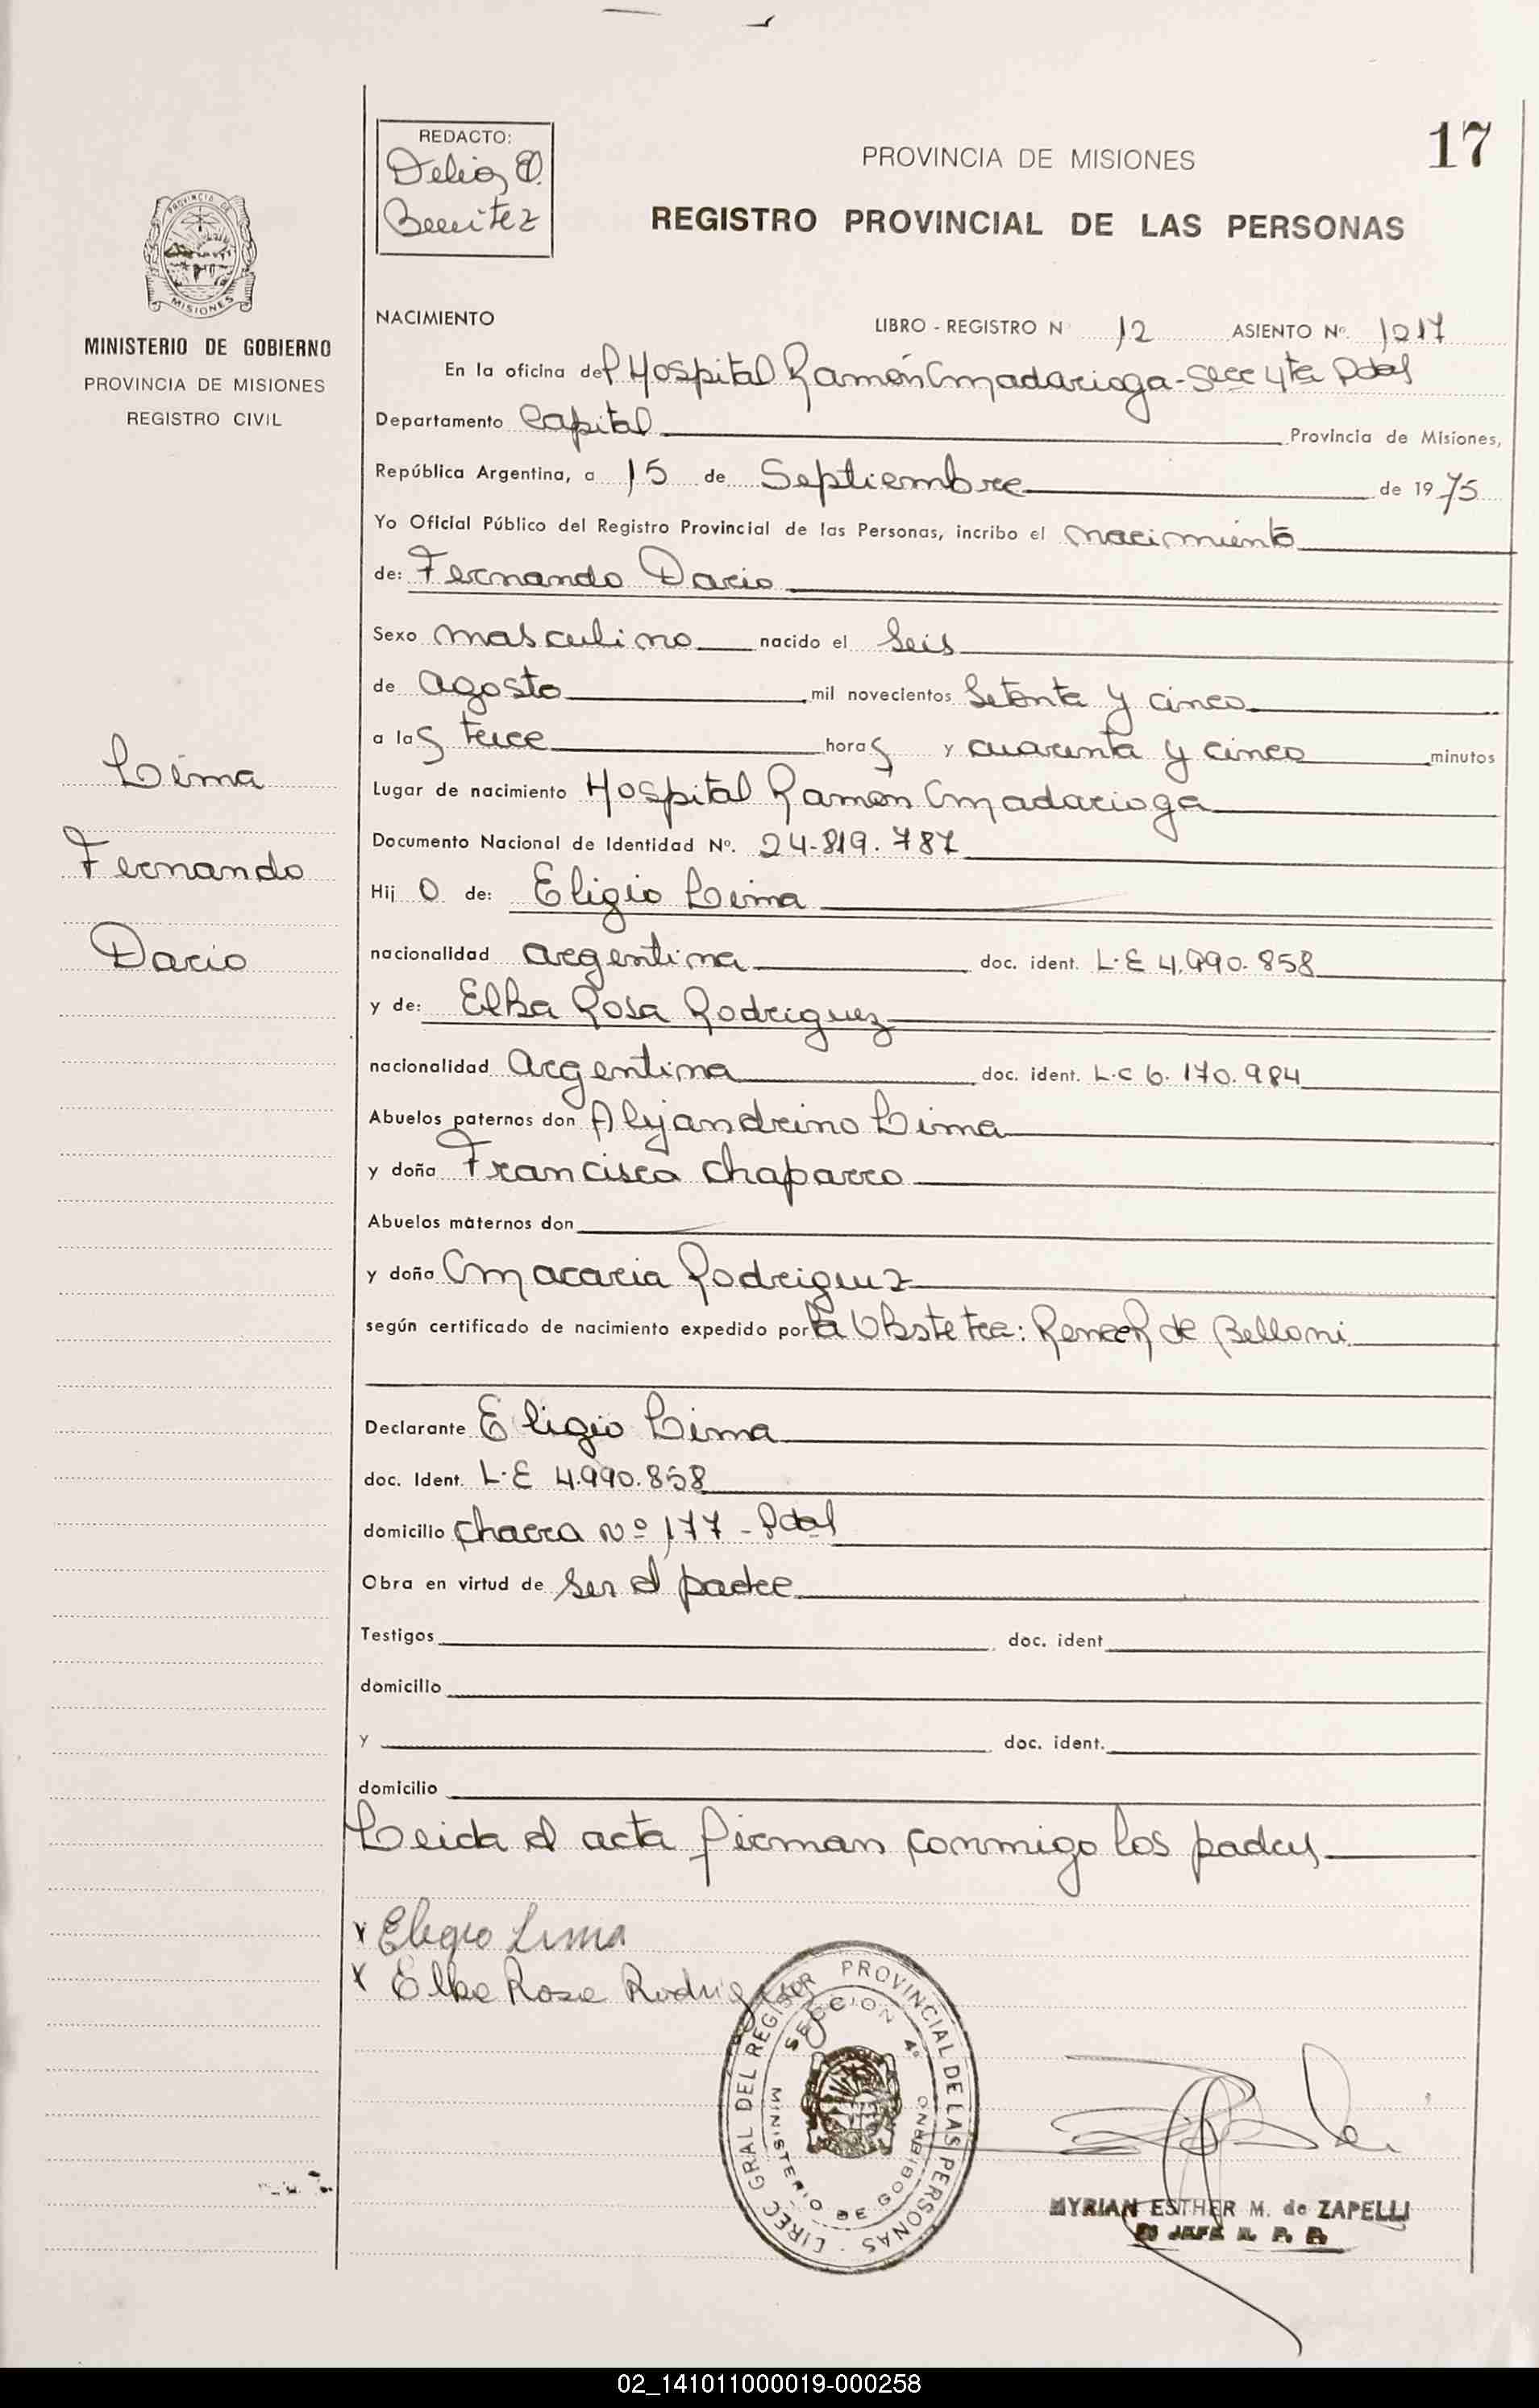 17
REDACTO:
Delia O.
Benitez
PROVINCIA DE MISIONES
REGISTRO PROVINCIAL DE LAS PERSONAS
PROVINCIA DE
MISIONES
MINISTERIO DE GOBIERNO
PROVINCIA DE MISIONES
REGISTRO CIVIL
NACIMIENTO
LIBRO - REGISTRO N° 12 ASIENTO Nº. 1017
En la oficina del Hospital Ramón Madariaga - Secc 4ta Pdas
Departamento Capital Provincia de Misiones,
República Argentina, a 15 de Septiembre de 1975
Yo Oficial Público del Registro Provincial de las Personas, incribo el nacimiento
de: Fernando Dario
Sexo masculino nacido el Seis
de agosto mil novecientos Setenta y cinco
a las trece horas y cuarenta y cinco minutos
Lugar de nacimiento Hospital Ramón Madariaga
Documento Nacional de Identidad Nº. 24.819.787
Hijo de: Eligio Lima
nacionalidad argentina doc. ident. L.E 4.990.858
y de: Elba Rosa Rodriguez
nacionalidad Argentina doc. ident. L.C 6.170.984
Abuelos paternos don Alejandrino Lima
y doña Francisca Chaparro
Abuelos maternos don
y doña Macaria Rodriguez
según certificado de nacimiento expedido por la Obstetra: de Belloni
Declarante Eligio Lima
doc. Ident. L.E 4.990.858
domicilio Chacra Nº 177 - Pdas
Obra en virtud de ser el padre
Testigos doc. ident
domicilio
y doc. ident.
domicilio
Leida el acta firman conmigo los padres
Lima
Fernando
Dario
x Eligio Lima
x Elba Rosa Rodriguez
DIREC GRAL DEL REGISTR PROVINCIAL DE LAS PERSONAS
SECCION 4º
MINISTERIO DE GOBIERNO
MYRIAN ESTHER M. de ZAPELLI
JEFE R. P. P.
02_141011000019-000258